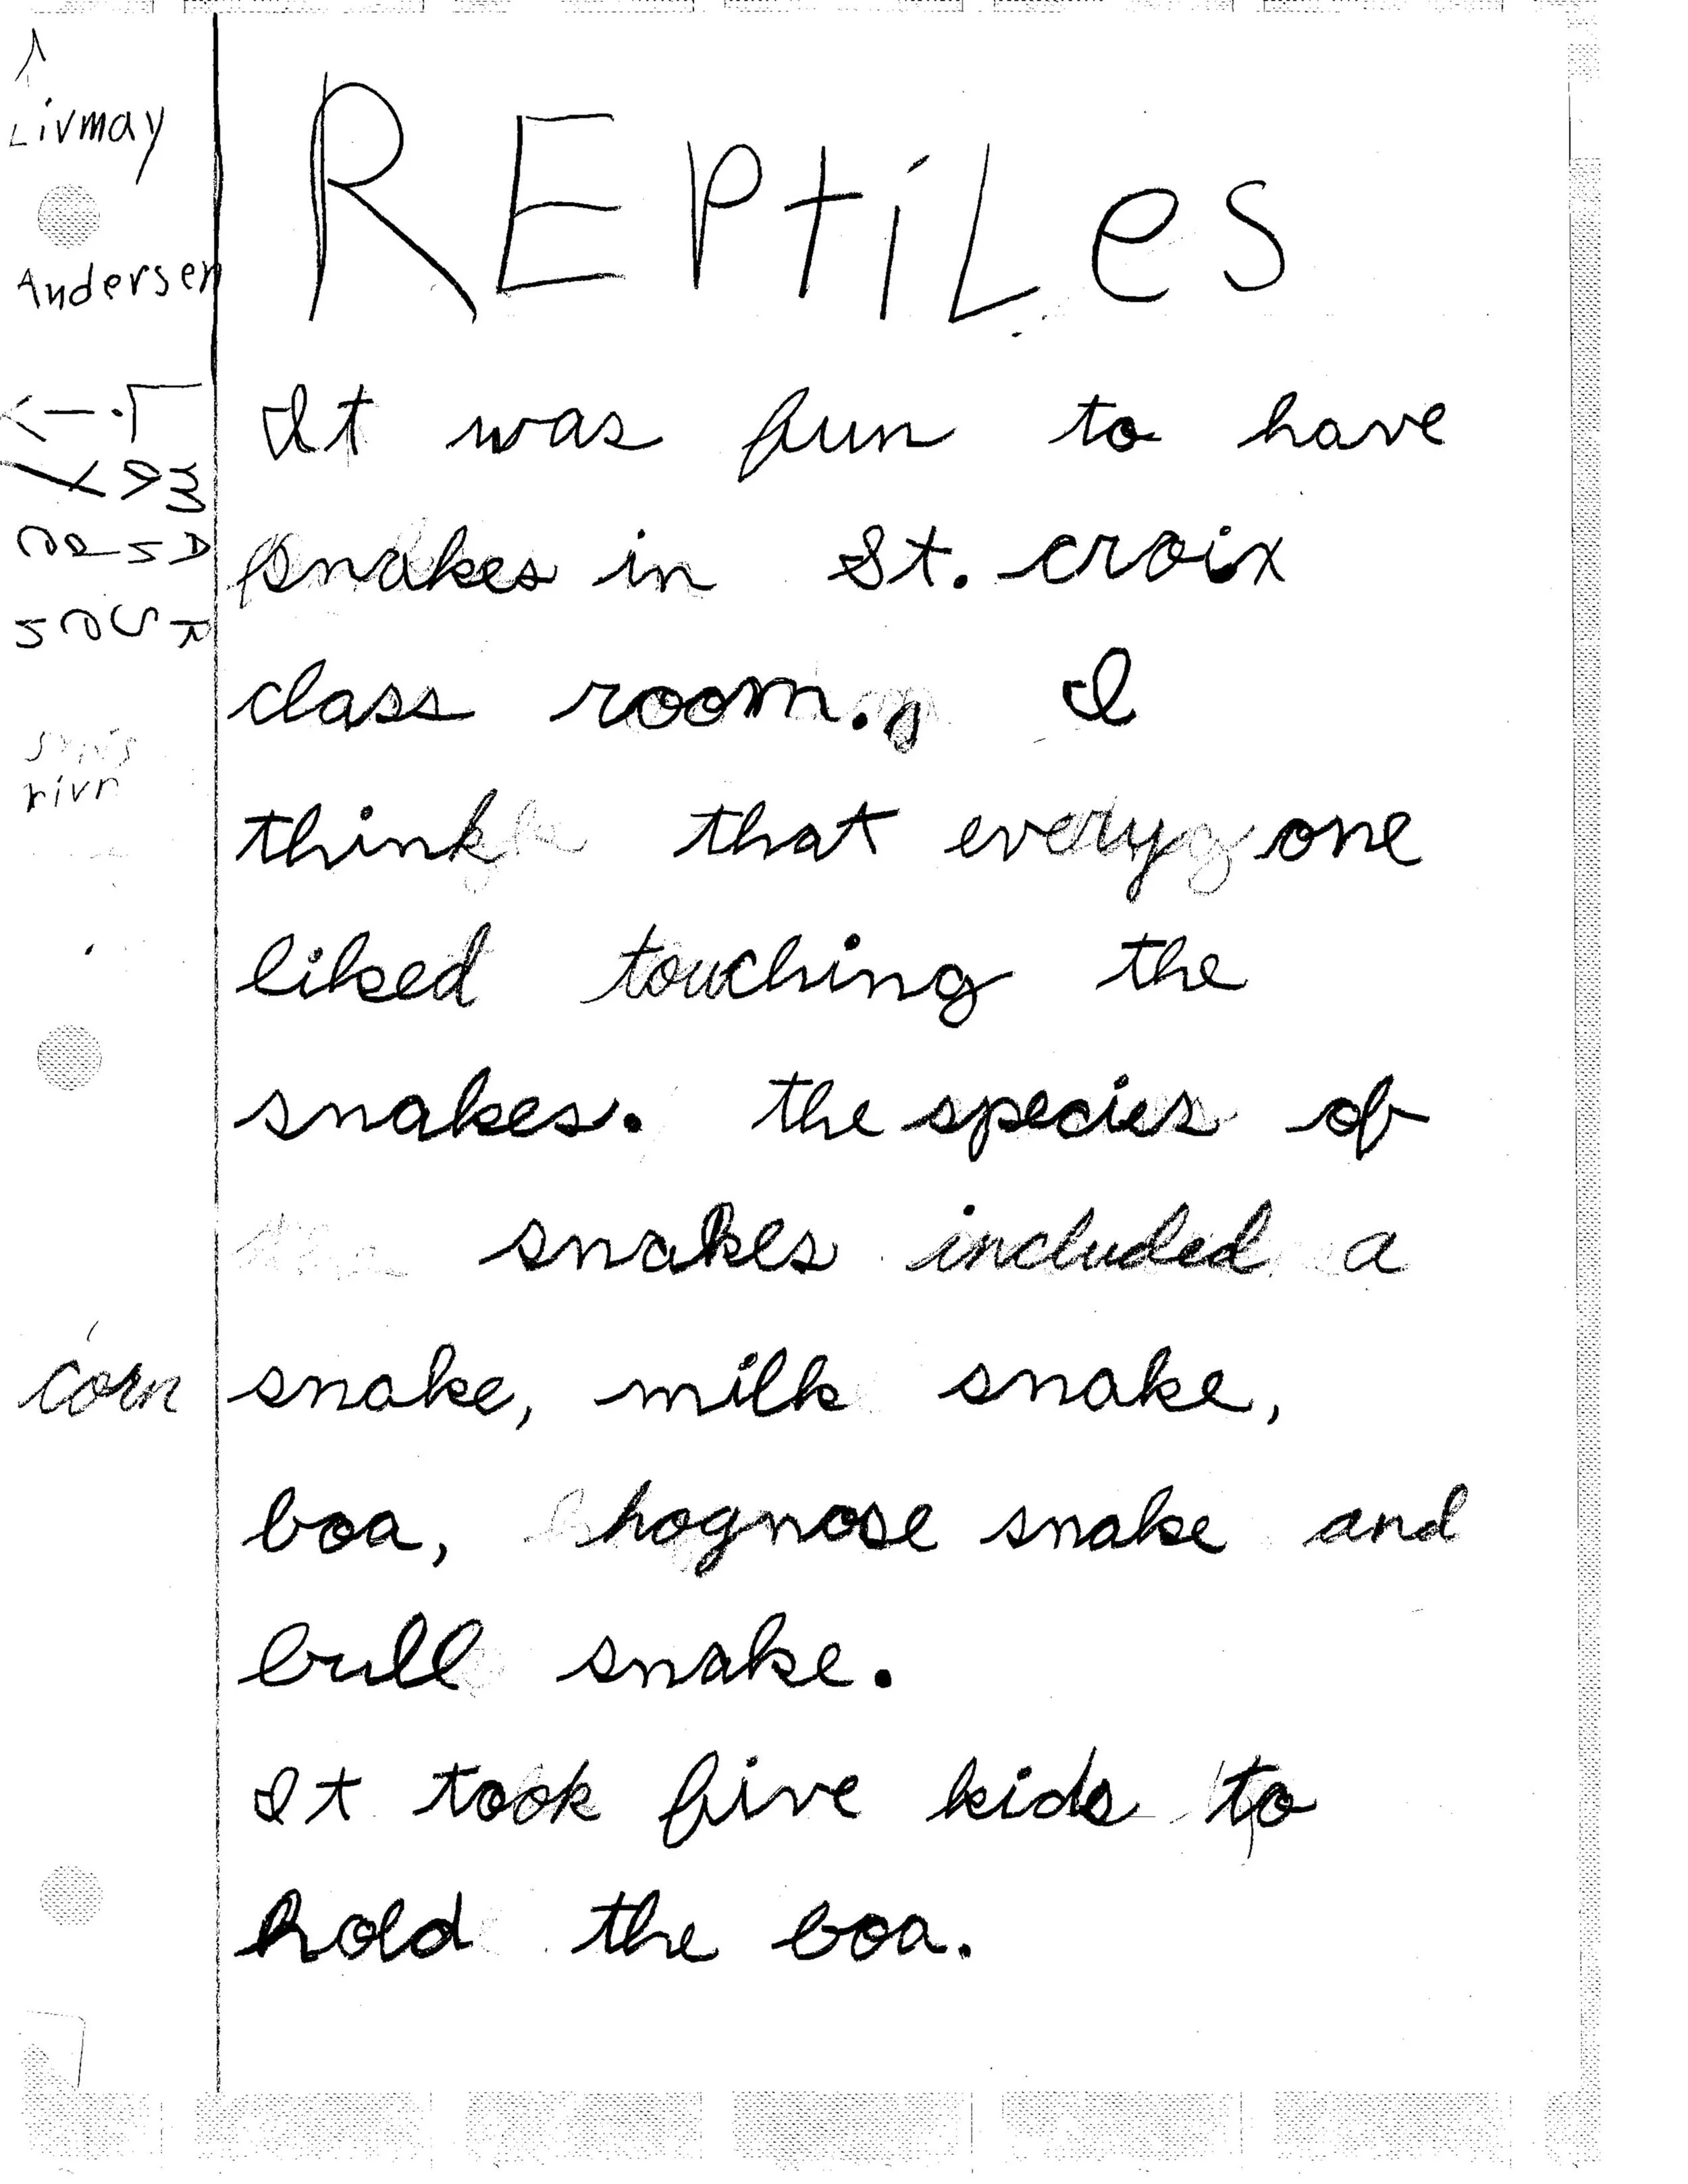 Livmay
Andersen
REPtiLes
It was fun to have
snakes in St. croix
class room. I
think that every one
liked touching the
snakes. the species of
the snakes included a
corn snake, milk snake,
boa, hognose snake and
bull snake.
It took five kids to
hold the boa.